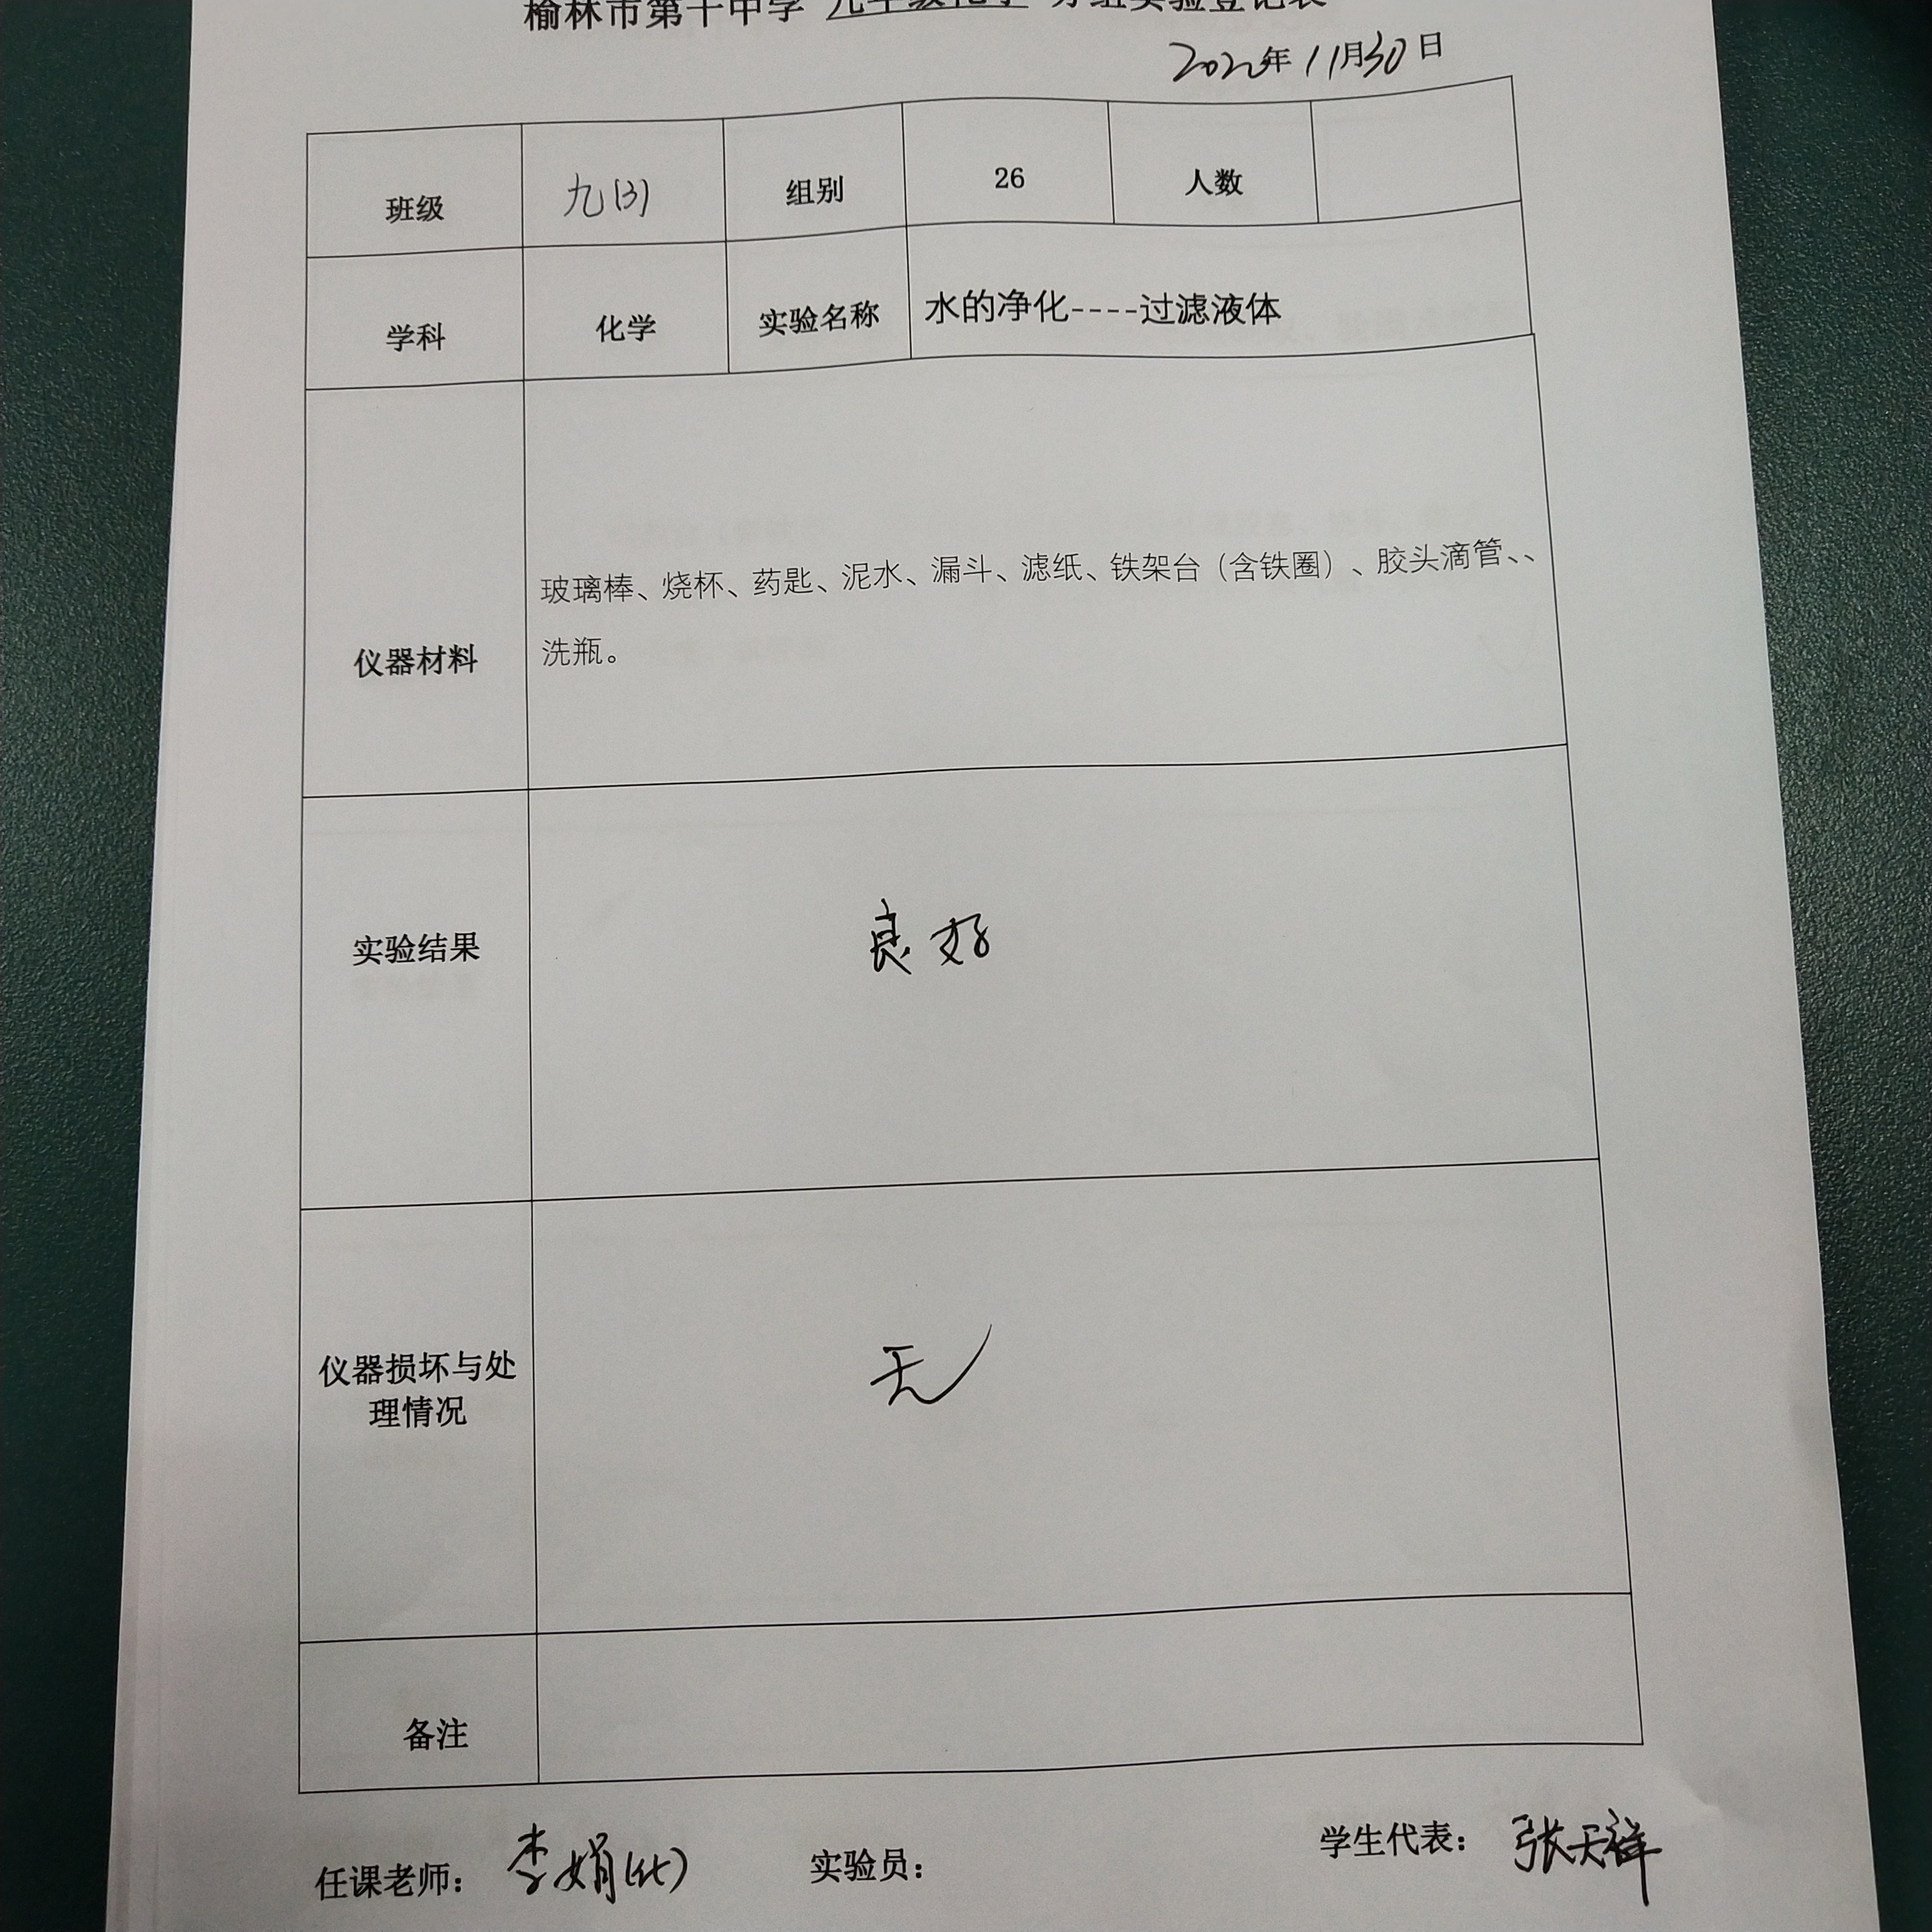 榆林市第十中学 九年级化学 分组实验登记表
2022年11月30日
班级 九(3) 组别 26 人数
学科 化学 实验名称 水的净化----过滤液体
仪器材料
玻璃棒、烧杯、药匙、泥水、漏斗、滤纸、铁架台（含铁圈）、胶头滴管、、
洗瓶。
实验结果 良好
仪器损坏与处
理情况
无
备注
任课老师： 李娟(化) 实验员： 学生代表： 张天祥